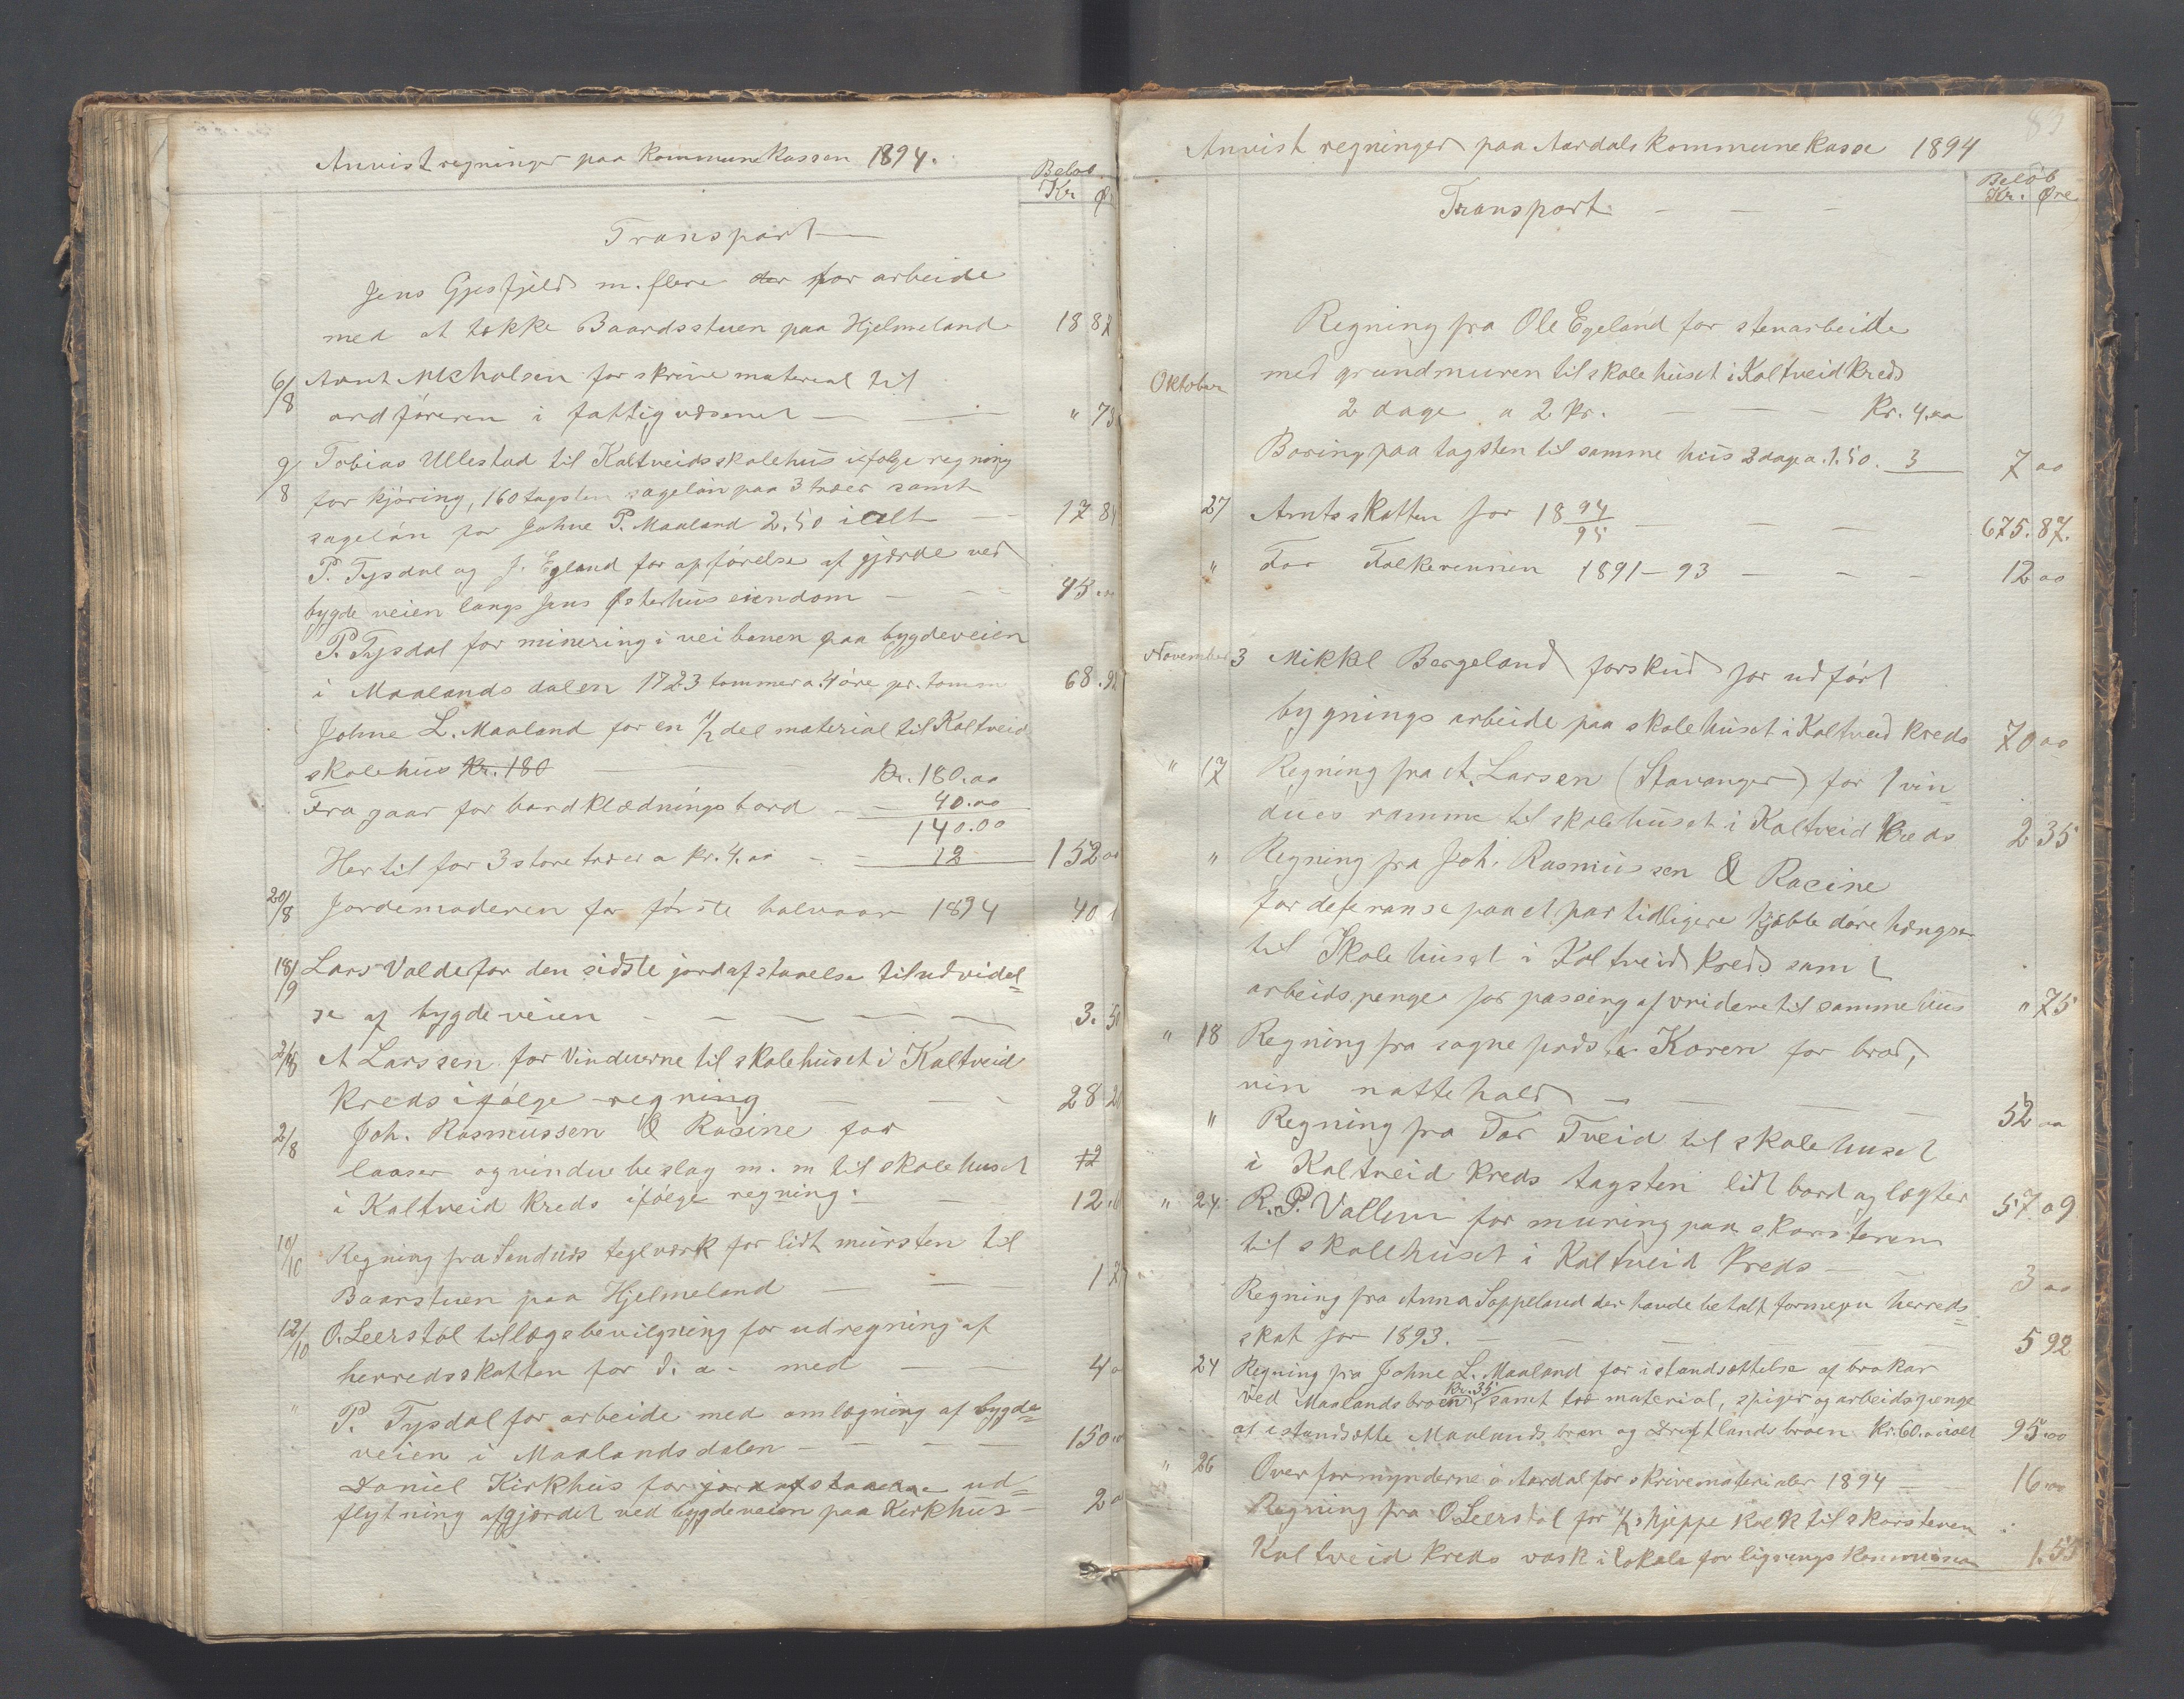 Anvist regninger paa Kommunekassen 1894.
Beløb
Kr Ø
Transport —
Jens Gjesfjeld m. flere for arbeide
med at tække Baardsstuen paa Hjelmeland 18 87
6/8 Arnt Nicholsen for skrive material til
ordføreren i fattigvæsenet — — " 75
9/8 Tobias Ullestad til Kaltveidsskolehus ifølge regning
for kjøring, 160 tagsten sageløn paa 3 træer samt
sageløn for Johne P. Maaland 2.50 ialt — 17 8
P. Tysdal og J. Egland for opførelse af gjærde ved
bygdeveien langs Jens Østerhus eiendom — — 45.
P. Tysdal for minering i veibanen paa bygdeveien
i Maalands dalen 1723 tommer a. 4 øre pr. tomm 68.92
Johne L. Maaland for en 1/2 del material til Kaltveid
skolehus Kr. 180 — Kr. 180.oo
Fra gaar for bordklædningsbord — — 40.oo
140.00
Hertil for 3 store træer a kr. 4.oo — — 12 152 oo
20/8 Jordemoderen for første halvaar 1894 40
18/9 Lars Valde for den sidste jordafstaaelse til udvidel=
se af bygdeveien — — — — — 3. 50
2/10 A Larssen for Vinduerne til skolehuset i Kaltveid
Kreds ifølge regning — — — 28 20
2/8 Joh. Rasmussen & Racine for
laaser og vindue beslag m. m til skolehuset 12
i Kaltveid Kreds ifølge regning. — 12.
10/10 Regning fra Sandnes teglværk for lidt mursten til
Baarstuen paa Hjelmeland — — 1 2
12/10 O. Leerstøl tillægsbevilgning for udregning af
herredsskatten for d. a. med — — 4 o
" P. Tysdal for arbeide med omlægning af bygde=
veien i Maalandsdalen — — — — 150.
Daniel Kirkhus for ud=
flytning af gjærdet ved bygdeveien paa Kirkhus 2 o
83
Anvist regninger paa Aardals Kommunekasse 1894
Beløb
Kr. Øre
Transport — — —
Regning fra Ole Egeland for stenarbeide
Oktober med grundmuren til skolehuset i Kaltveid Kreds
2 dage a 2 Kr. — — — Kr. 4.oo
Boring paa tagsten til samme hus 2 dage a. 1.50. 3 7 oo
27 Amtsskatten for 18 94/95 — — — 675.87.
" For Folkevennen 1891–93 — — — 12 oo
November 3 Mikkel Bergeland forskud for udført
bygnings arbeide paa skolehuset i Kaltveid Kreds 70 oo
" 17 Regning fra A. Larsen (Stavanger) for 1 vin=
dues ramme til skolehuset i Kaltveid Kreds 2 35
" Regning fra Joh. Rasmussen & Racine
for deferanse paa et par tidligere kjøbte døre hængsør
til Skolehuset i Kaltveid Kreds samt
arbeidspenge for passing af vridere til samme hus " 75
" 18 Regning fra sogneprest Koren for brød,
vin nattehold — — — — 52 oo
" Regning fra Tor Tveid til skolehuset
i Kaltveid Kreds tagsten lidt bord og lægter 57 09
" 24. R. P. Vallem for muring paa skorstenen
til skolehuset i Kaltveid Kreds — — 3 oo
Regning fra Anna Soppeland der havde betalt formegen herreds=
skat for 1893. — — — — 5 92
24 Regning fra Johne L. Maaland for istandsættelse af brokar
ved Maalandsbroen Kr. 35 samt træ material, spiger og arbeidspenge
at istandsætte Maalandsbroen og broen Kr. 60. ialt 95.oo
" 26 Overformynderne i Aardal for skrivematerialer 1894 — — 16.oo
Regning fra O. Leerstøl for 1/2 skjeppe Kalk til skorstenen i
Kaltveid Kreds vask i lokale for lignings Kommission 1.55